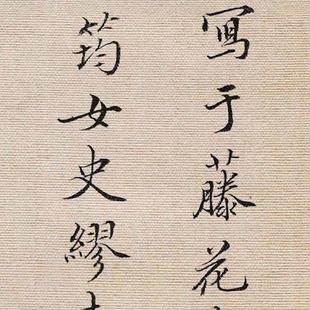 写于藤花
筠女史繆